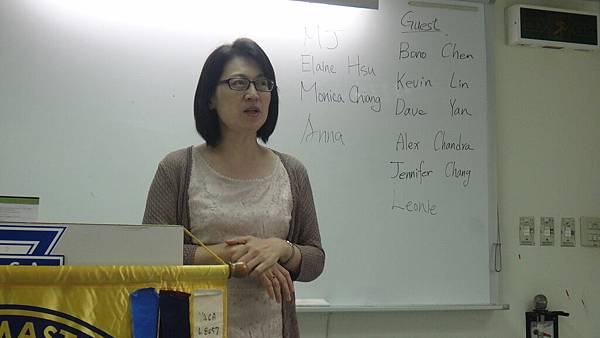 MJ
Elaine Hsu
Monica Chiang
Anna
Guest
Bono Chen
Kevin Lin
Dave Yan
Alex Chandra
Jennifer Chang
Leonie
MAST